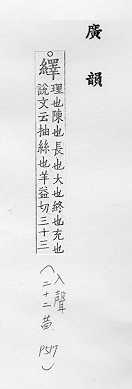 廣韻
○繹理也陳也長也大也終也充也
說文云抽絲也羊益切三十三
(入聲
二十二昔
P517)